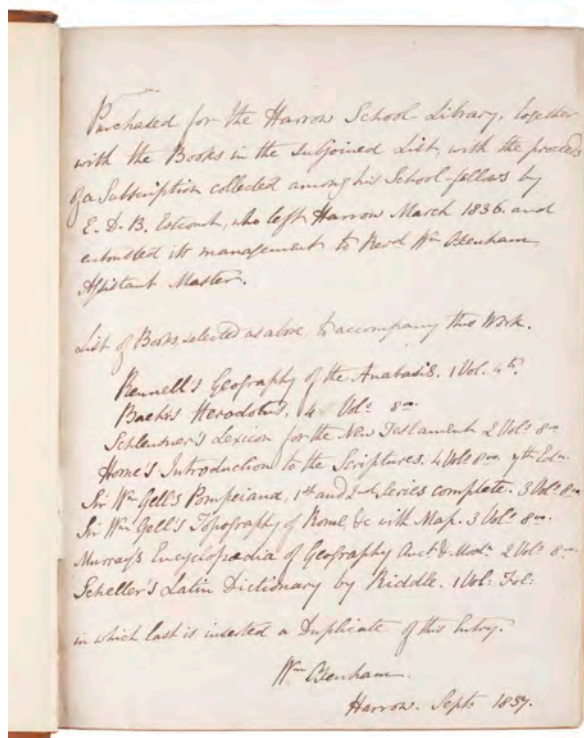 Purchased for the Harrow School-Library, together
with the Books in the subjoined List, with the proceeds
of a Subscription collected among his School-fellows by
E. D. B. Estcourt, who left Harrow March 1836. and
entrusted its management to Revd Wm Oxenham
Assistant Master.
List of Books, selected as above, to accompany this Work.
Rennell's Geography of the Anabasis. 1 Vol. 4to.
Baehr's Herodotus. 4 Vols 8vo.
Schleusner's Lexicon for the New Testament 2 Vols 8vo
Horne's Introduction to the Scriptures. 4 Vols 8vo. 7th Edn.
Sir Wm Gell's Pompeiana, 1st and 2nd Series complete. 3 Vols 8vo
Sir Wm Gell's Topography of Rome, &c with Map. 3 Vols 8vo.
Murray's Encyclopædia of Geography Anct & Modn 2 Vols 8vo
Scheller's Latin Dictionary by Riddle. 1 Vol: Fol:
in which last is inserted a Duplicate of this Entry.
Wm Oxenham.
Harrow. Septr 1837.